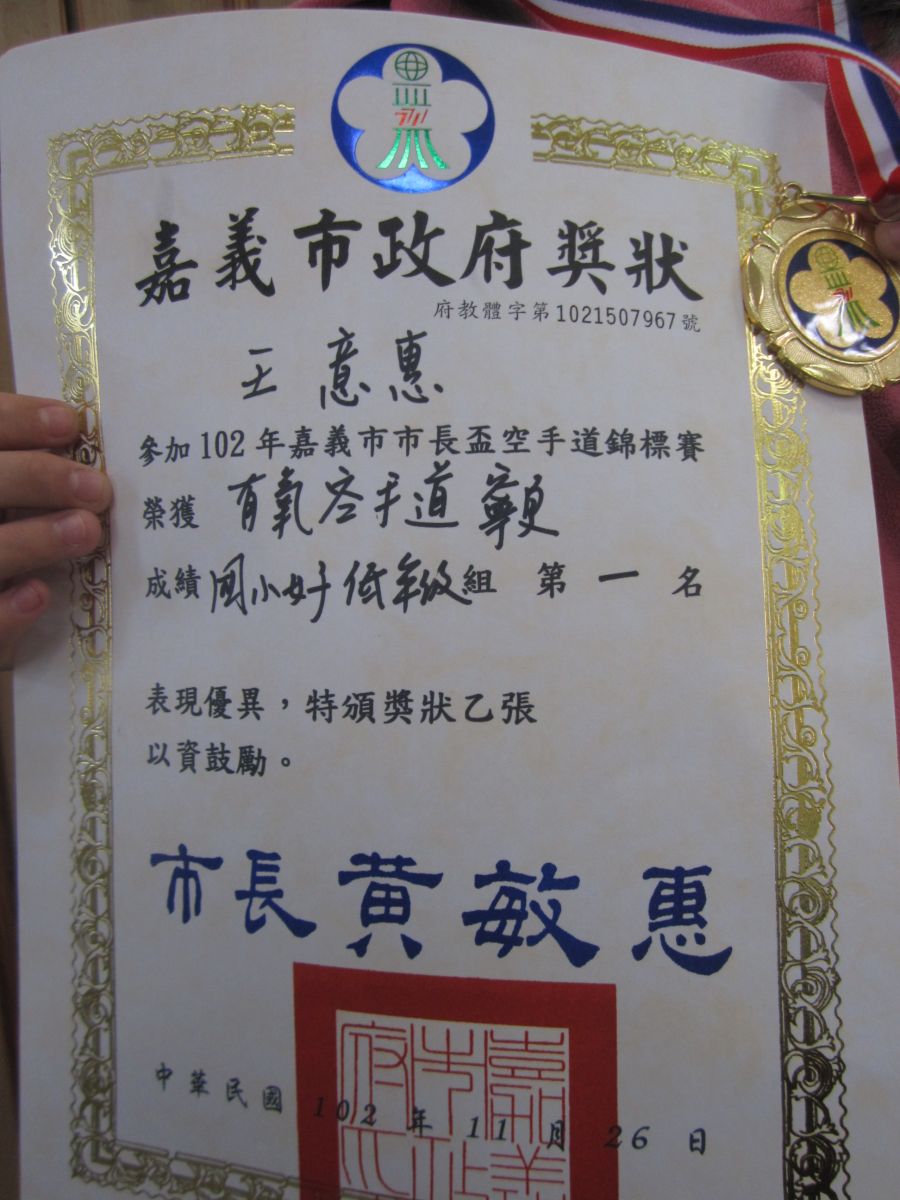 嘉義市政府獎狀
府教體字第1021507967號
王意惠
參加102年嘉義市市長盃空手道錦標賽
榮獲 有氧空手道
成績 國小女子低年級組 第一名
表現優異,特頒獎狀乙張
以資鼓勵。
市長 黃敏惠
中華民國 102 年 11 月 26 日